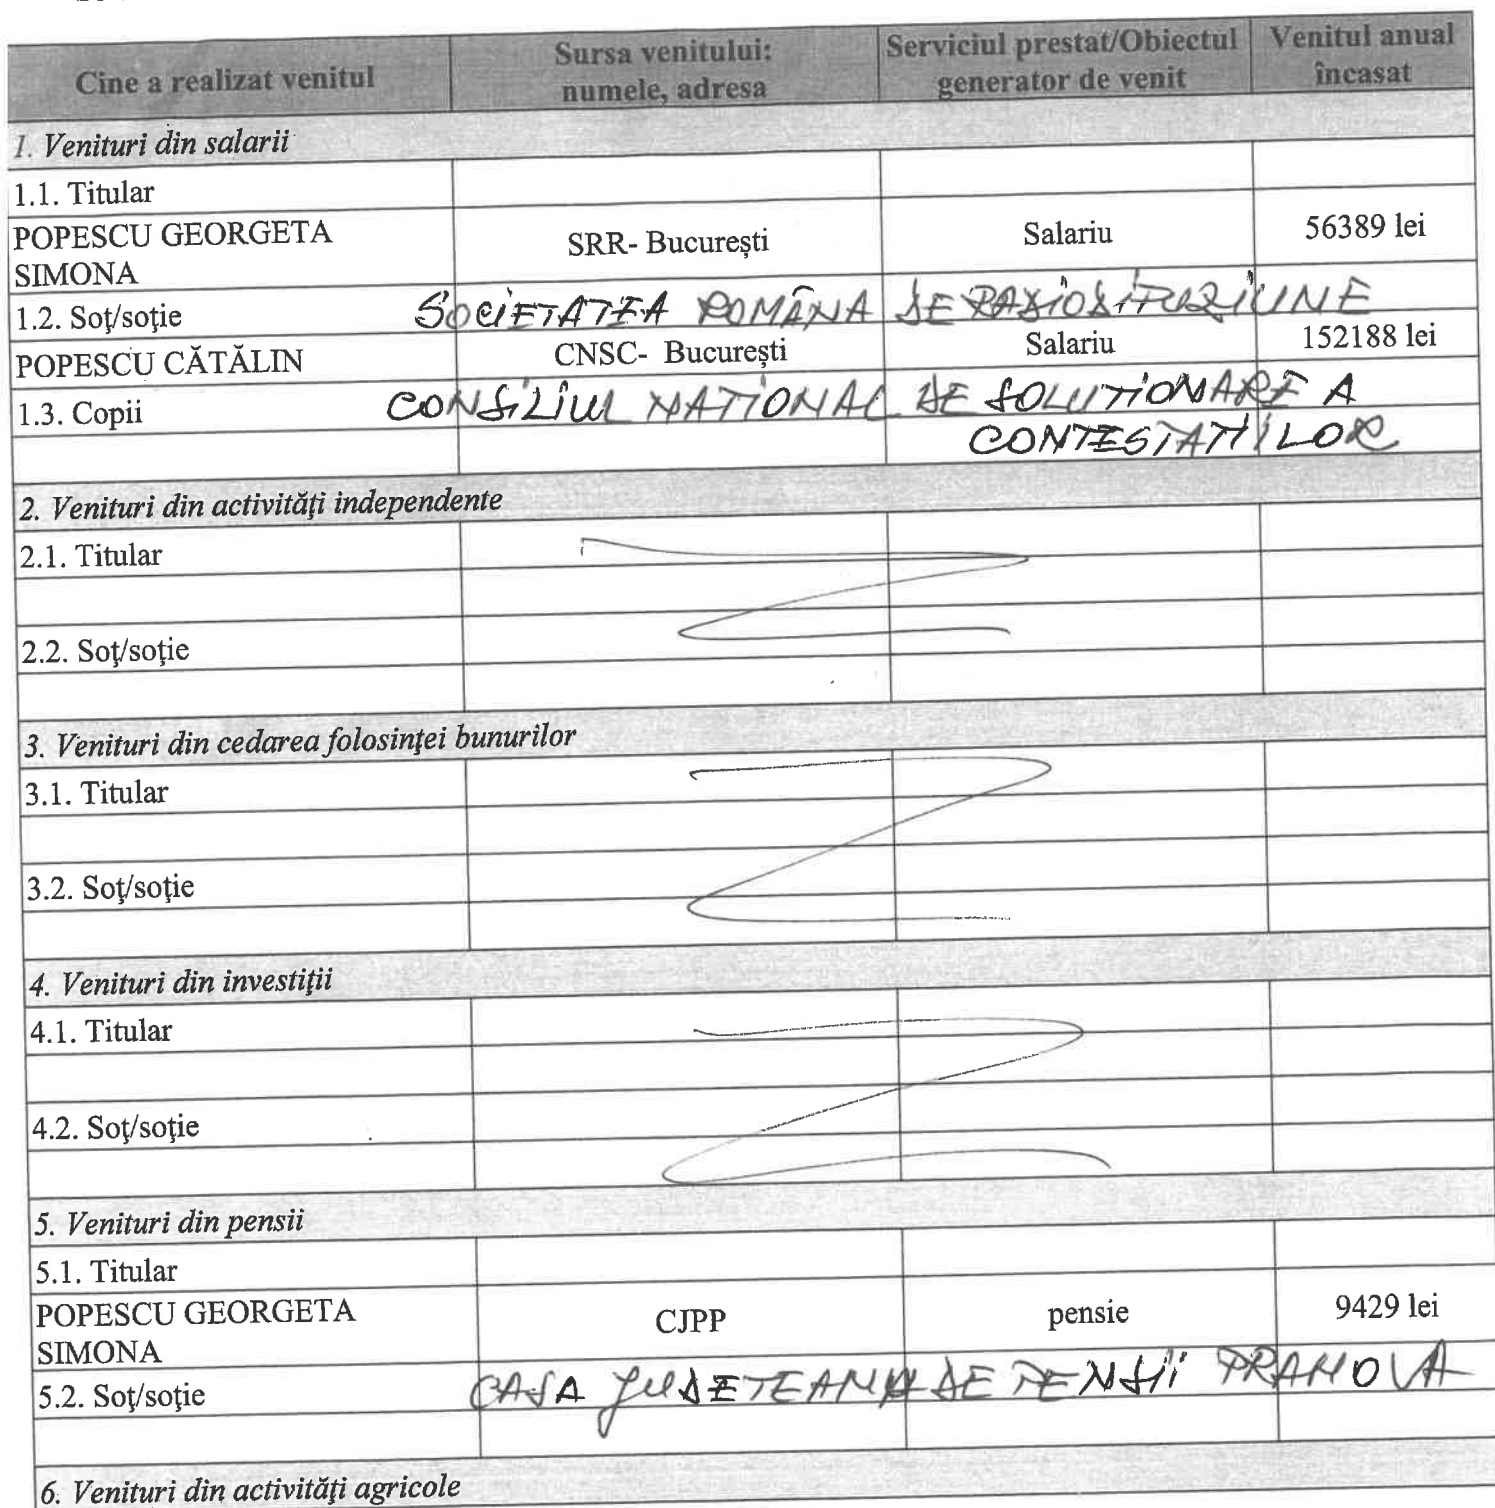 Cine a realizat venitul
Sursa venitului:
numele, adresa
Serviciul prestat/Obiectul
generator de venit
Venitul anual
încasat
1. Venituri din salarii
1.1. Titular
POPESCU GEORGETA
SIMONA
SRR- București
Salariu
56389 lei
1.2. Soţ/soţie
SOCIETATEA ROMÂNA DE RADIODIFUZIUNE
POPESCU CĂTĂLIN
CNSC- București
Salariu
152188 lei
1.3. Copii
CONSILIUL NATIONAL DE SOLUTIONARE A
CONTESTATIILOR
2. Venituri din activităţi independente
2.1. Titular
2.2. Soţ/soţie
3. Venituri din cedarea folosinţei bunurilor
3.1. Titular
3.2. Soţ/soţie
4. Venituri din investiţii
4.1. Titular
4.2. Soţ/soţie
5. Venituri din pensii
5.1. Titular
POPESCU GEORGETA
SIMONA
CJPP
pensie
9429 lei
5.2. Soţ/soţie
CASA JUDETEANA DE PENSII PRAHOVA
6. Venituri din activităţi agricole